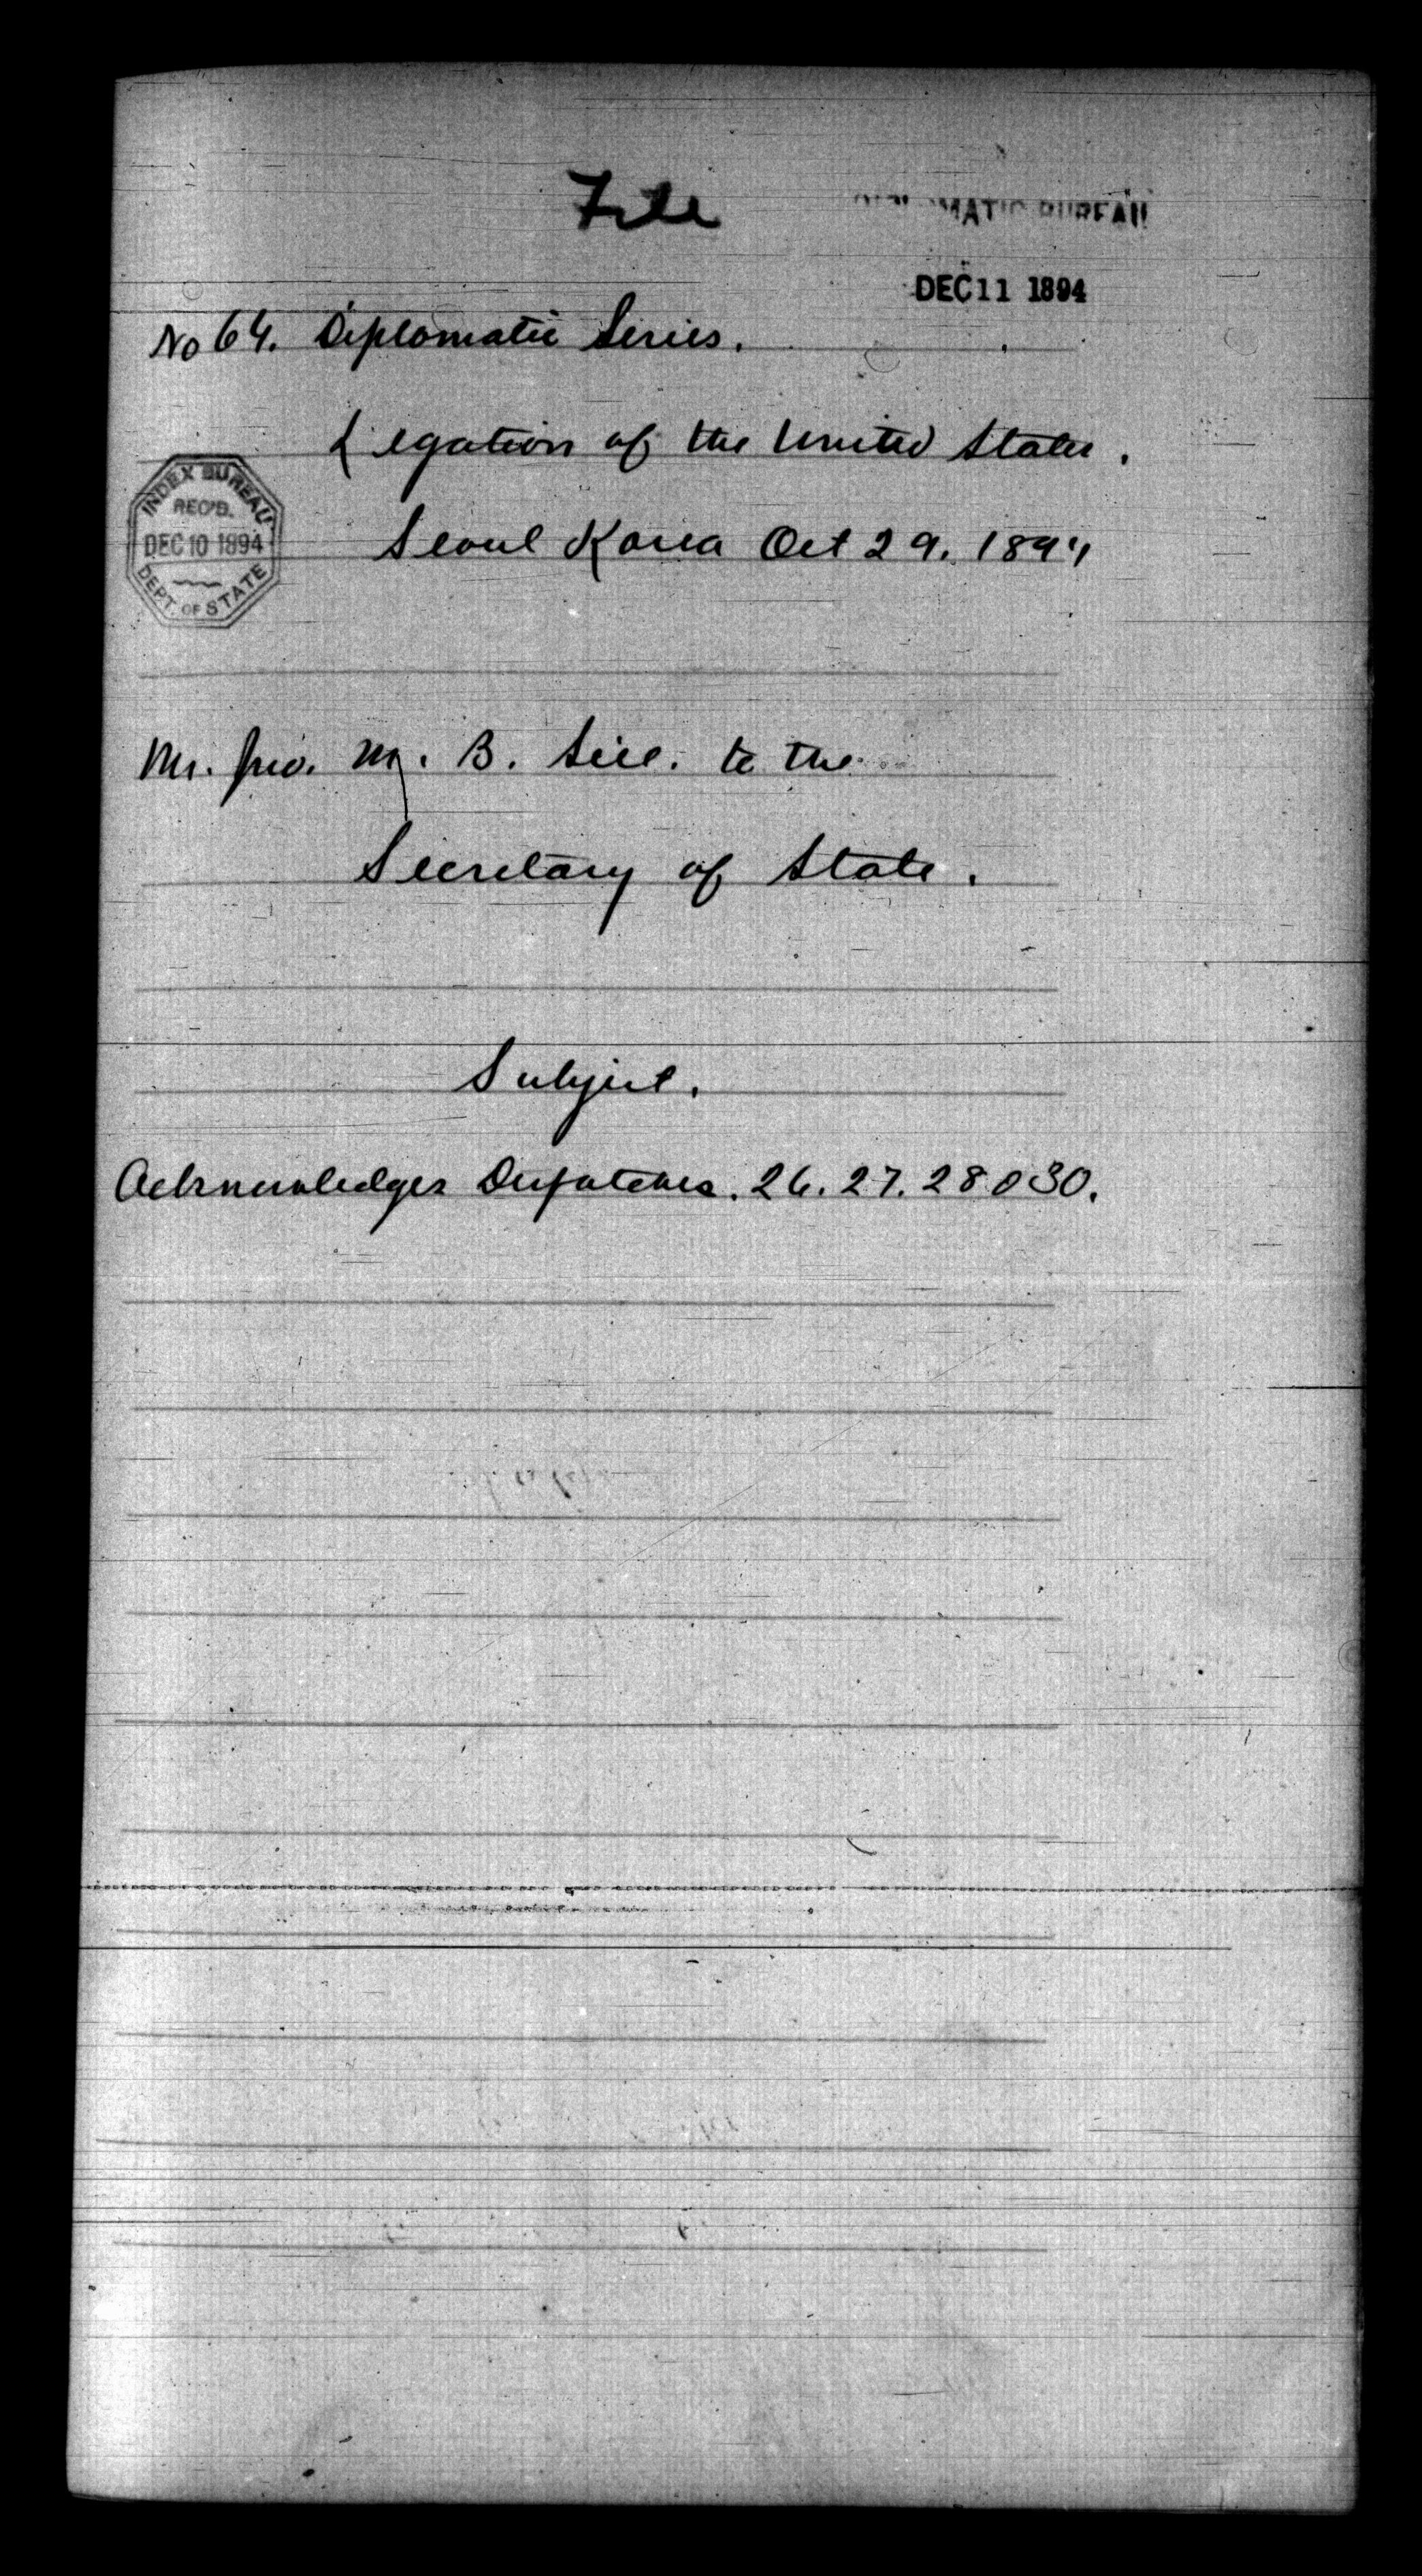 File
DIPLOMATIC BUREAU
DEC 11 1894
No 64. Diplomatic Series.
Legation of the United States.
Seoul Korea Oct 29. 1894
INDEX BUREAU
REC'D.
DEC 10 1894
DEPT. OF STATE
Mr. Jno. M. B. Sill. to the
Secretary of State.
Subject.
Acknowledges Despatches. 26. 27. 28 & 30.